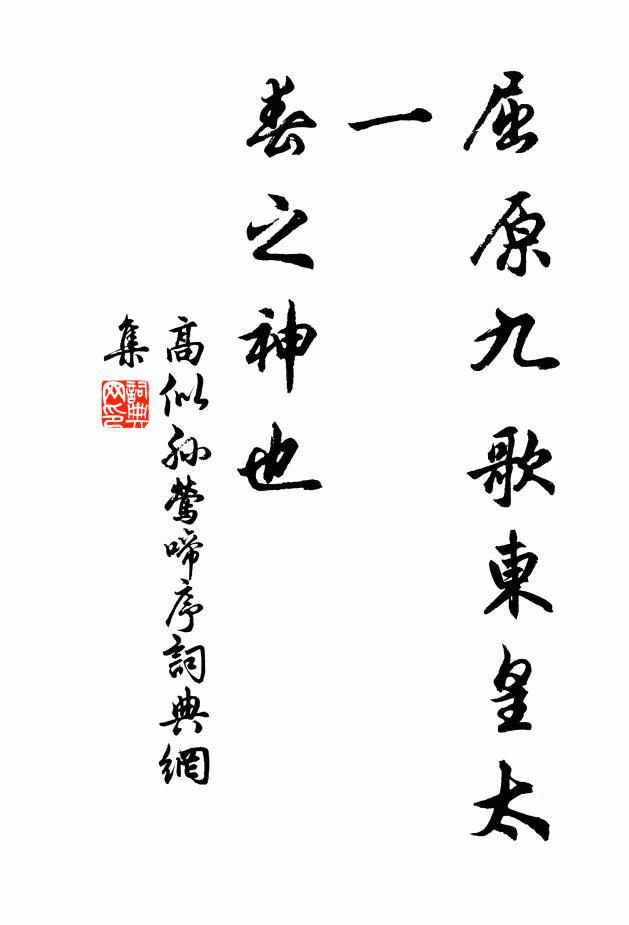 屈原九歌東皇太
一
春之神也
高似孫鶯啼序詞典網
集
詞典
网印